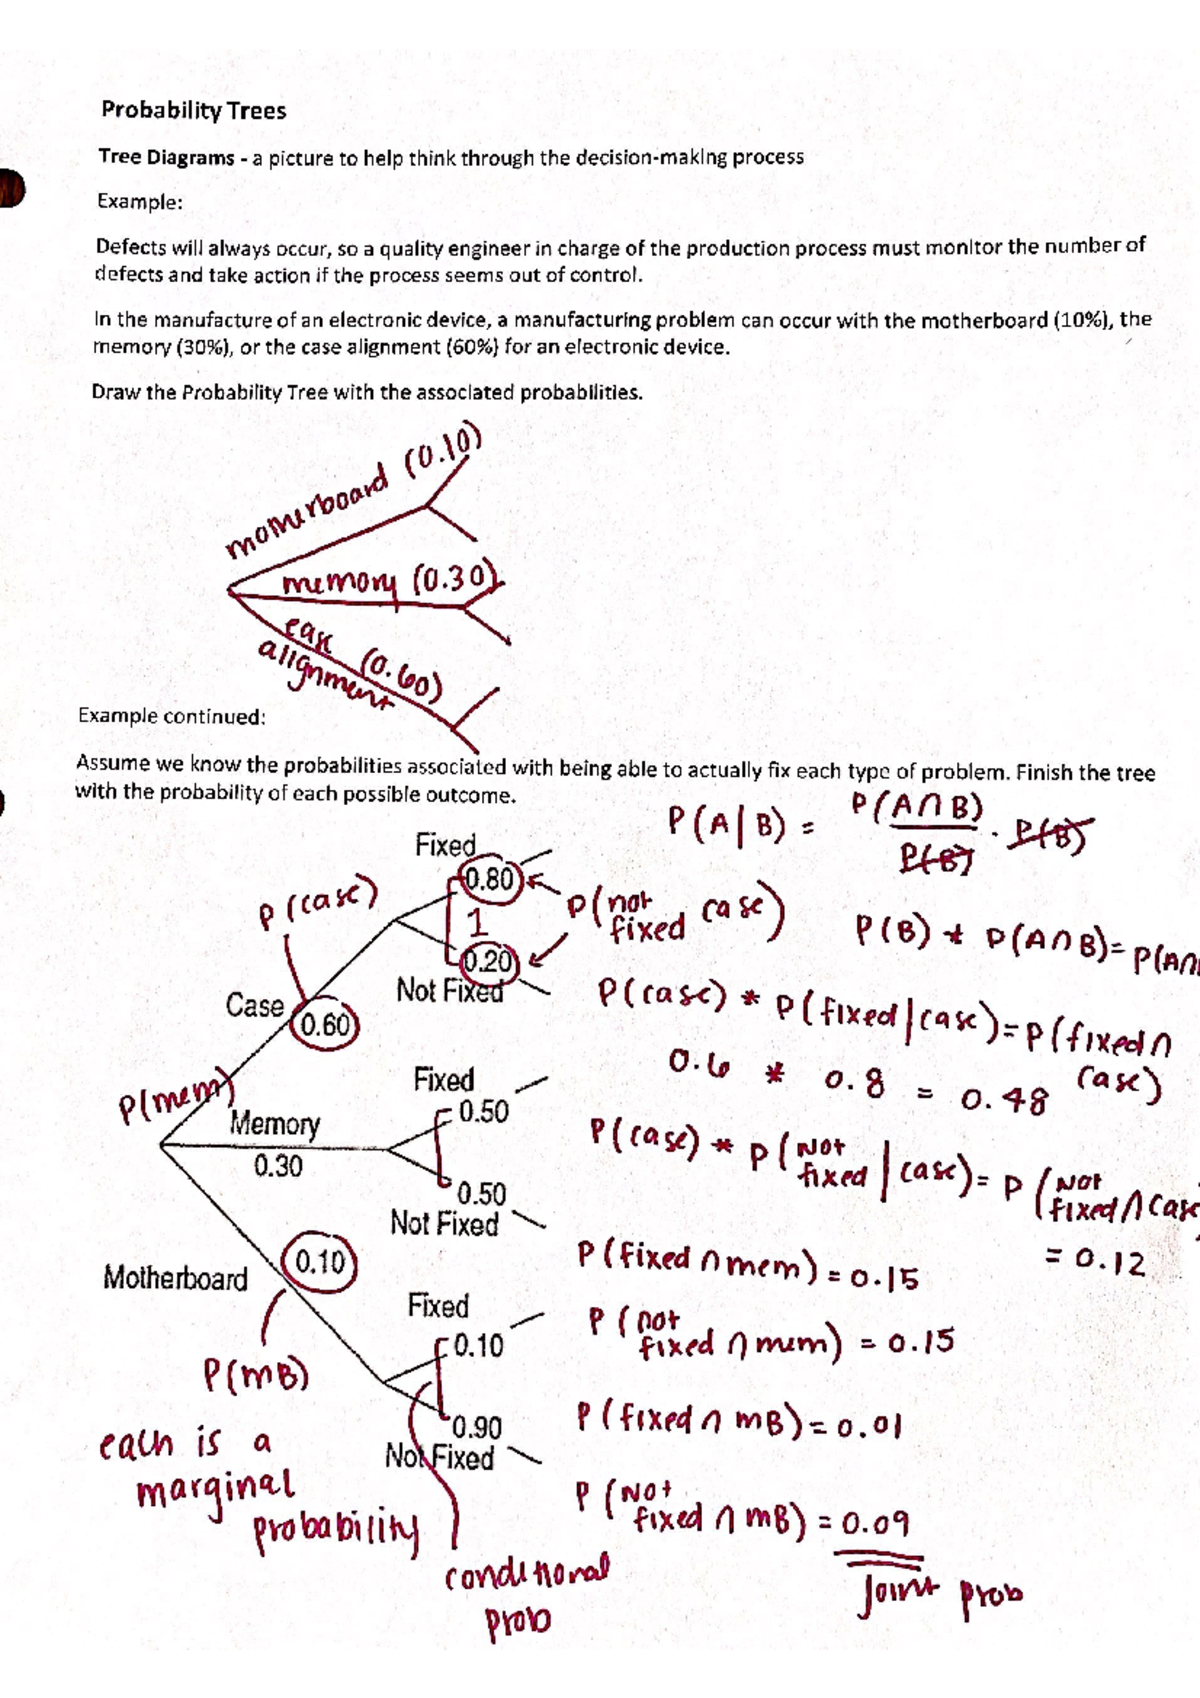 Probability Trees
Tree Diagrams - a picture to help think through the decision-making process
Example:
Defects will always occur, so a quality engineer in charge of the production process must monitor the number of
defects and take action if the process seems out of control.
In the manufacture of an electronic device, a manufacturing problem can occur with the motherboard (10%), the
memory (30%), or the case alignment (60%) for an electronic device.
Draw the Probability Tree with the associated probabilities.
motherboard (0.10)
memory (0.30)
case (0.60)
alignment
Example continued:
Assume we know the probabilities associated with being able to actually fix each type of problem. Finish the tree
with the probability of each possible outcome.
P(A|B) = P(A∩B) / P(B) · P(B)
Fixed
0.80
P(case)
1
P(not fixed case)
P(B) * P(A∩B) = P(A∩
0.20
Not Fixed
Case
0.60
P(case) * P(fixed|case) = P(fixed ∩ case)
0.6 * 0.8 = 0.48
P(mem)
Fixed
0.50
Memory
0.30
P(case) * P(Not fixed | case) = P(Not fixed ∩ case
= 0.12
0.50
Not Fixed
P(fixed ∩ mem) = 0.15
0.10
Motherboard
Fixed
0.10
P(not fixed ∩ mem) = 0.15
P(MB)
P(fixed ∩ MB) = 0.01
0.90
Not Fixed
each is a
marginal
probability
P(Not fixed ∩ MB) = 0.09
conditional
prob
Joint prob